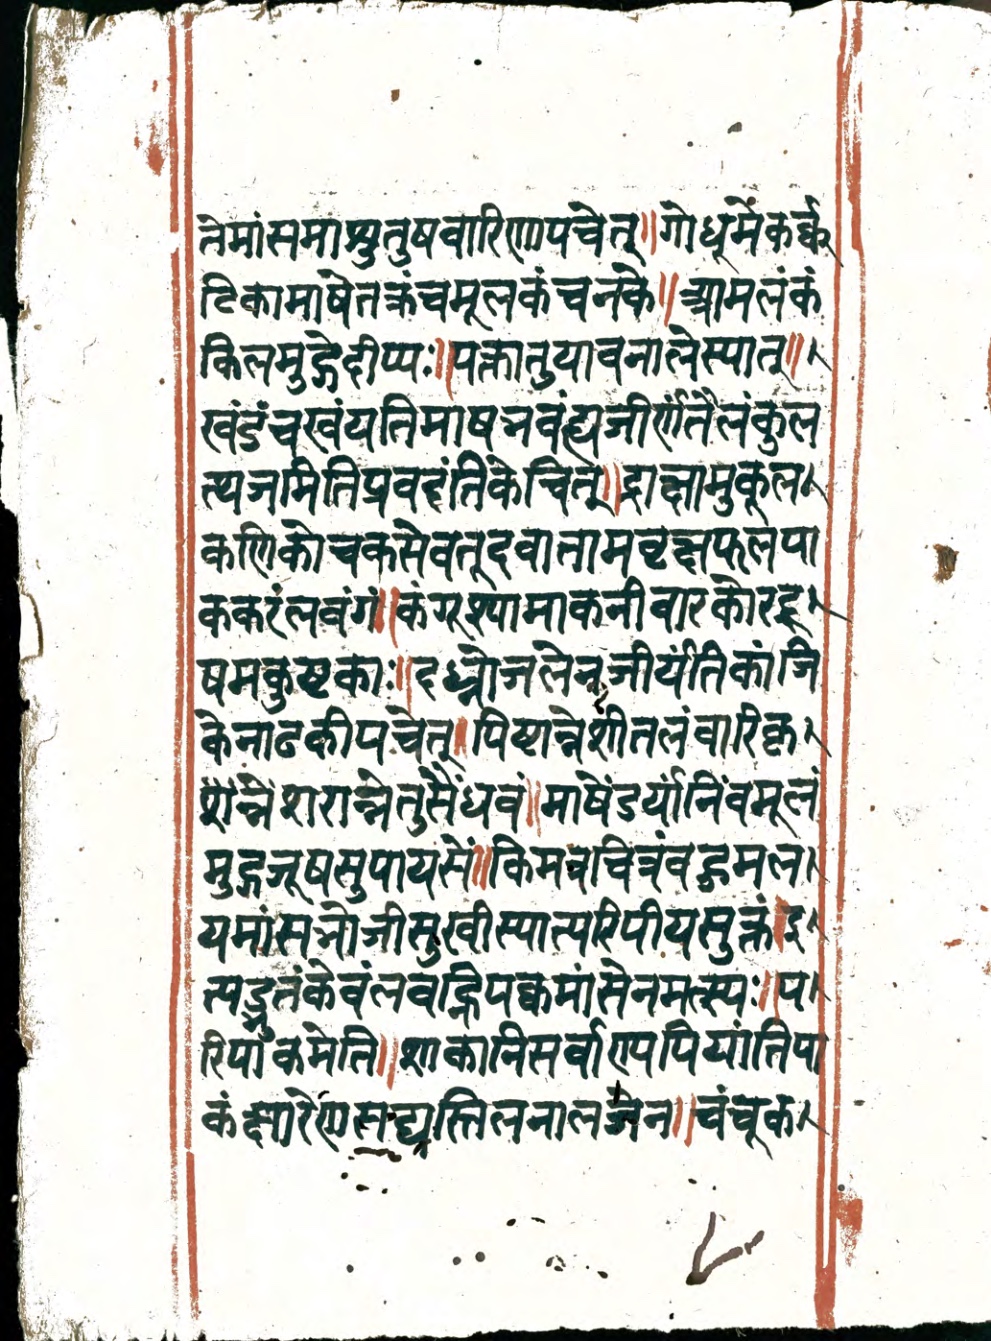 तेमांसमाश्युतुषवारिणापचेत्॥गोधूमेकर्क्क
टिकामाषेतक्रंचमूलकंचनके॥आमलंकं
किलमुद्गेदीप्यः॥पक्तातुयावनालेस्यात्॥
खंडंचखंयतिमाषनवंह्यजीर्णंतैलंकुल
त्यजमितिप्रवदंतिकेचित्॥द्राक्षामुकूल
कणिकोचकसेवतूदवातामवृक्षफलपा
ककरंलवंगं॥कंगूश्यामाकनीवारकोरदू
षमकुष्टकाः॥दध्नोजलेनजीर्यंतिकांजि
केनाढकीपचेत्॥पिष्टान्नेशीतलंवारिकृ
शैन्नेशरान्नेतुसैंधवं॥माषेंडर्यांनिंवमूलं
मुद्गजूषसुपायसें॥किमत्रचित्रंवद्गमल
यमांसनोजीसुखीस्यात्परिपीयसुक्तं॥इ
त्यद्भुतंकेवंलवह्निपक्कमांसेनमत्स्यः॥प
रिपाकमेति॥शाकानिसर्वाण्यपियांतिपा
कंक्षारेणसद्यस्तिलनालजेन॥चंचूक